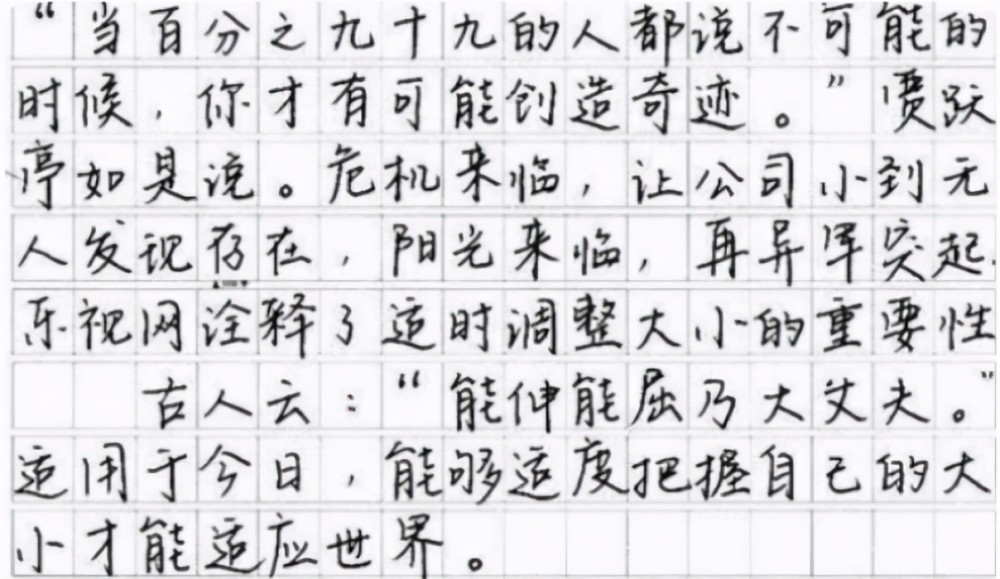 “当百分之九十九的人都说不可能的
时候，你才有可能创造奇迹。”贾跃
亭如是说。危机来临，让公司小到无
人发现存在，阳光来临，再异军突起.
乐视网诠释了适时调整大小的重要性
古人云：“能伸能屈乃大丈夫。”
适用于今日，能够适度把握自己的大
小才能适应世界。